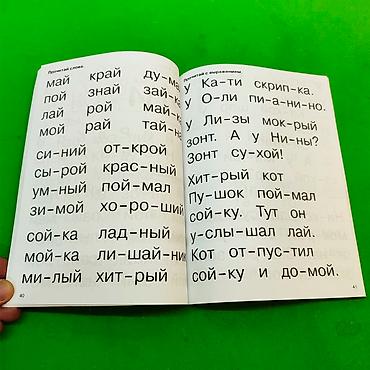 Прочитай слова.
май край ду-ма
пой знай зай-ка
лай рой май-ка
мой рай тай-на
си-ний от-крой
сы-рой крас-ный
ум-ный пой-мал
зи-мой хо-ро-ший
сой-ка лад-ный
мой-ка ли-шай-ник
ми-лый хит-рый
40
Прочитай с выражением.
У Ка-ти скрип-ка.
У О-ли пи-а-ни-но.
У Ли-зы мок-рый
зонт. А у Ни-ны?
Зонт су-хой!
Хит-рый кот
Пу-шок пой-мал
сой-ку. Тут он
у-слы-шал лай.
Кот от-пус-тил
сой-ку и до-мой.
41